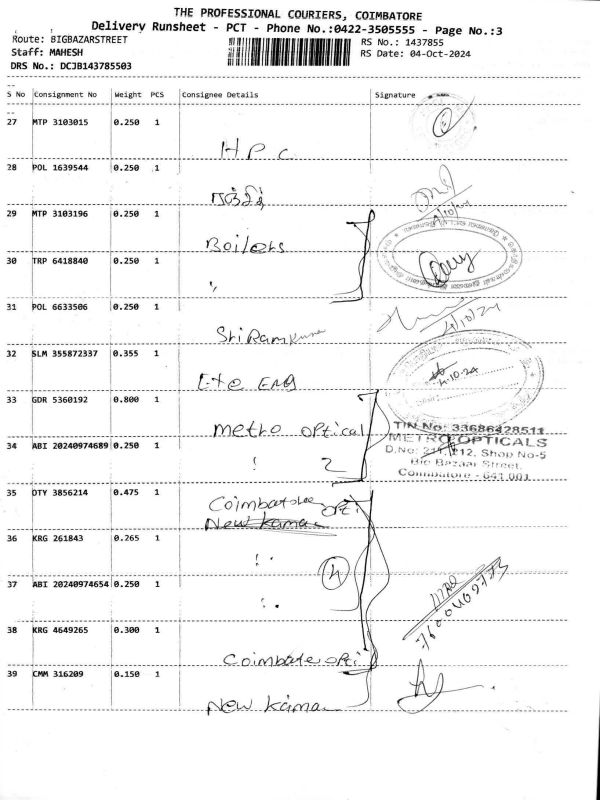 THE PROFESSIONAL COURIERS, COIMBATORE
Delivery Runsheet - PCT - Phone No.:0422-3505555 - Page No.:3
Route: BIGBAZARSTREET
RS No.: 1437855
Staff: MAHESH
RS Date: 04-Oct-2024
DRS No.: DCJB143785503
S No Consignment No Weight PCS Consignee Details Signature
27 MTP 3103015 0.250 1
H P C
28 POL 1639544 0.250 1
29 MTP 3103196 0.250 1
4/10/24
Boilers
30 TRP 6418840 0.250 1
"
31 POL 6633506 0.250 1
4/10/24
Sri Ram
32 SLM 355872337 0.355 1
4.10.24
Eng
33 GDR 5360192 0.800 1
metro optical
TIN No: 33686428511
METRO OPTICALS
34 ABI 20240974689 0.250 1
D.No: 211, 212, Shop No-5
! 2
Big Bazaar Street,
Coimbatore - 641 001
35 DTY 3856214 0.475 1
Coimbatore opti
New Kamal
36 KRG 261843 0.265 1
4
37 ABI 20240974654 0.250 1
38 KRG 4649265 0.300 1
Coimbatore opti
39 CMM 316209 0.150 1
New Kamal